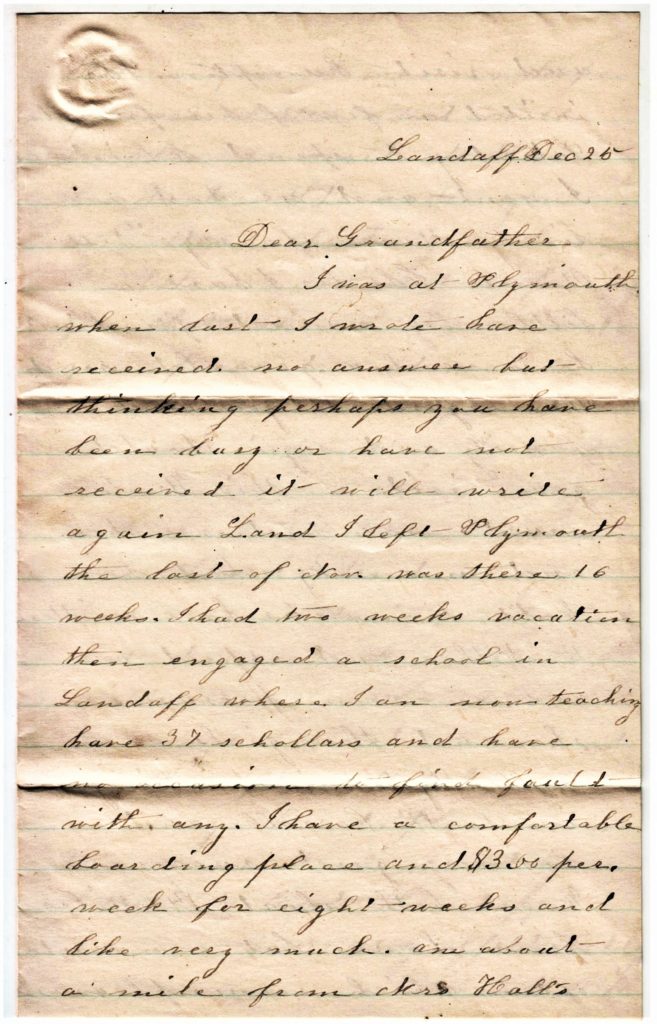 Landaff Dec 25
Dear Grandfather
I was at Plymouth
when last I wrote have
received no answer but
thinking perhaps you have
been busy or have not
received it will write
again L and I left Plymouth
the last of Nov. was there 16
weeks. I had two weeks vacation
then engaged a school in
Landaff where I am now teaching
have 37 schollars and have
no occasion to find fault
with any. I have a comfortable
boarding place and $3.00 per.
week for eight weeks and
like very much. am about
a mile from Mrs Halls